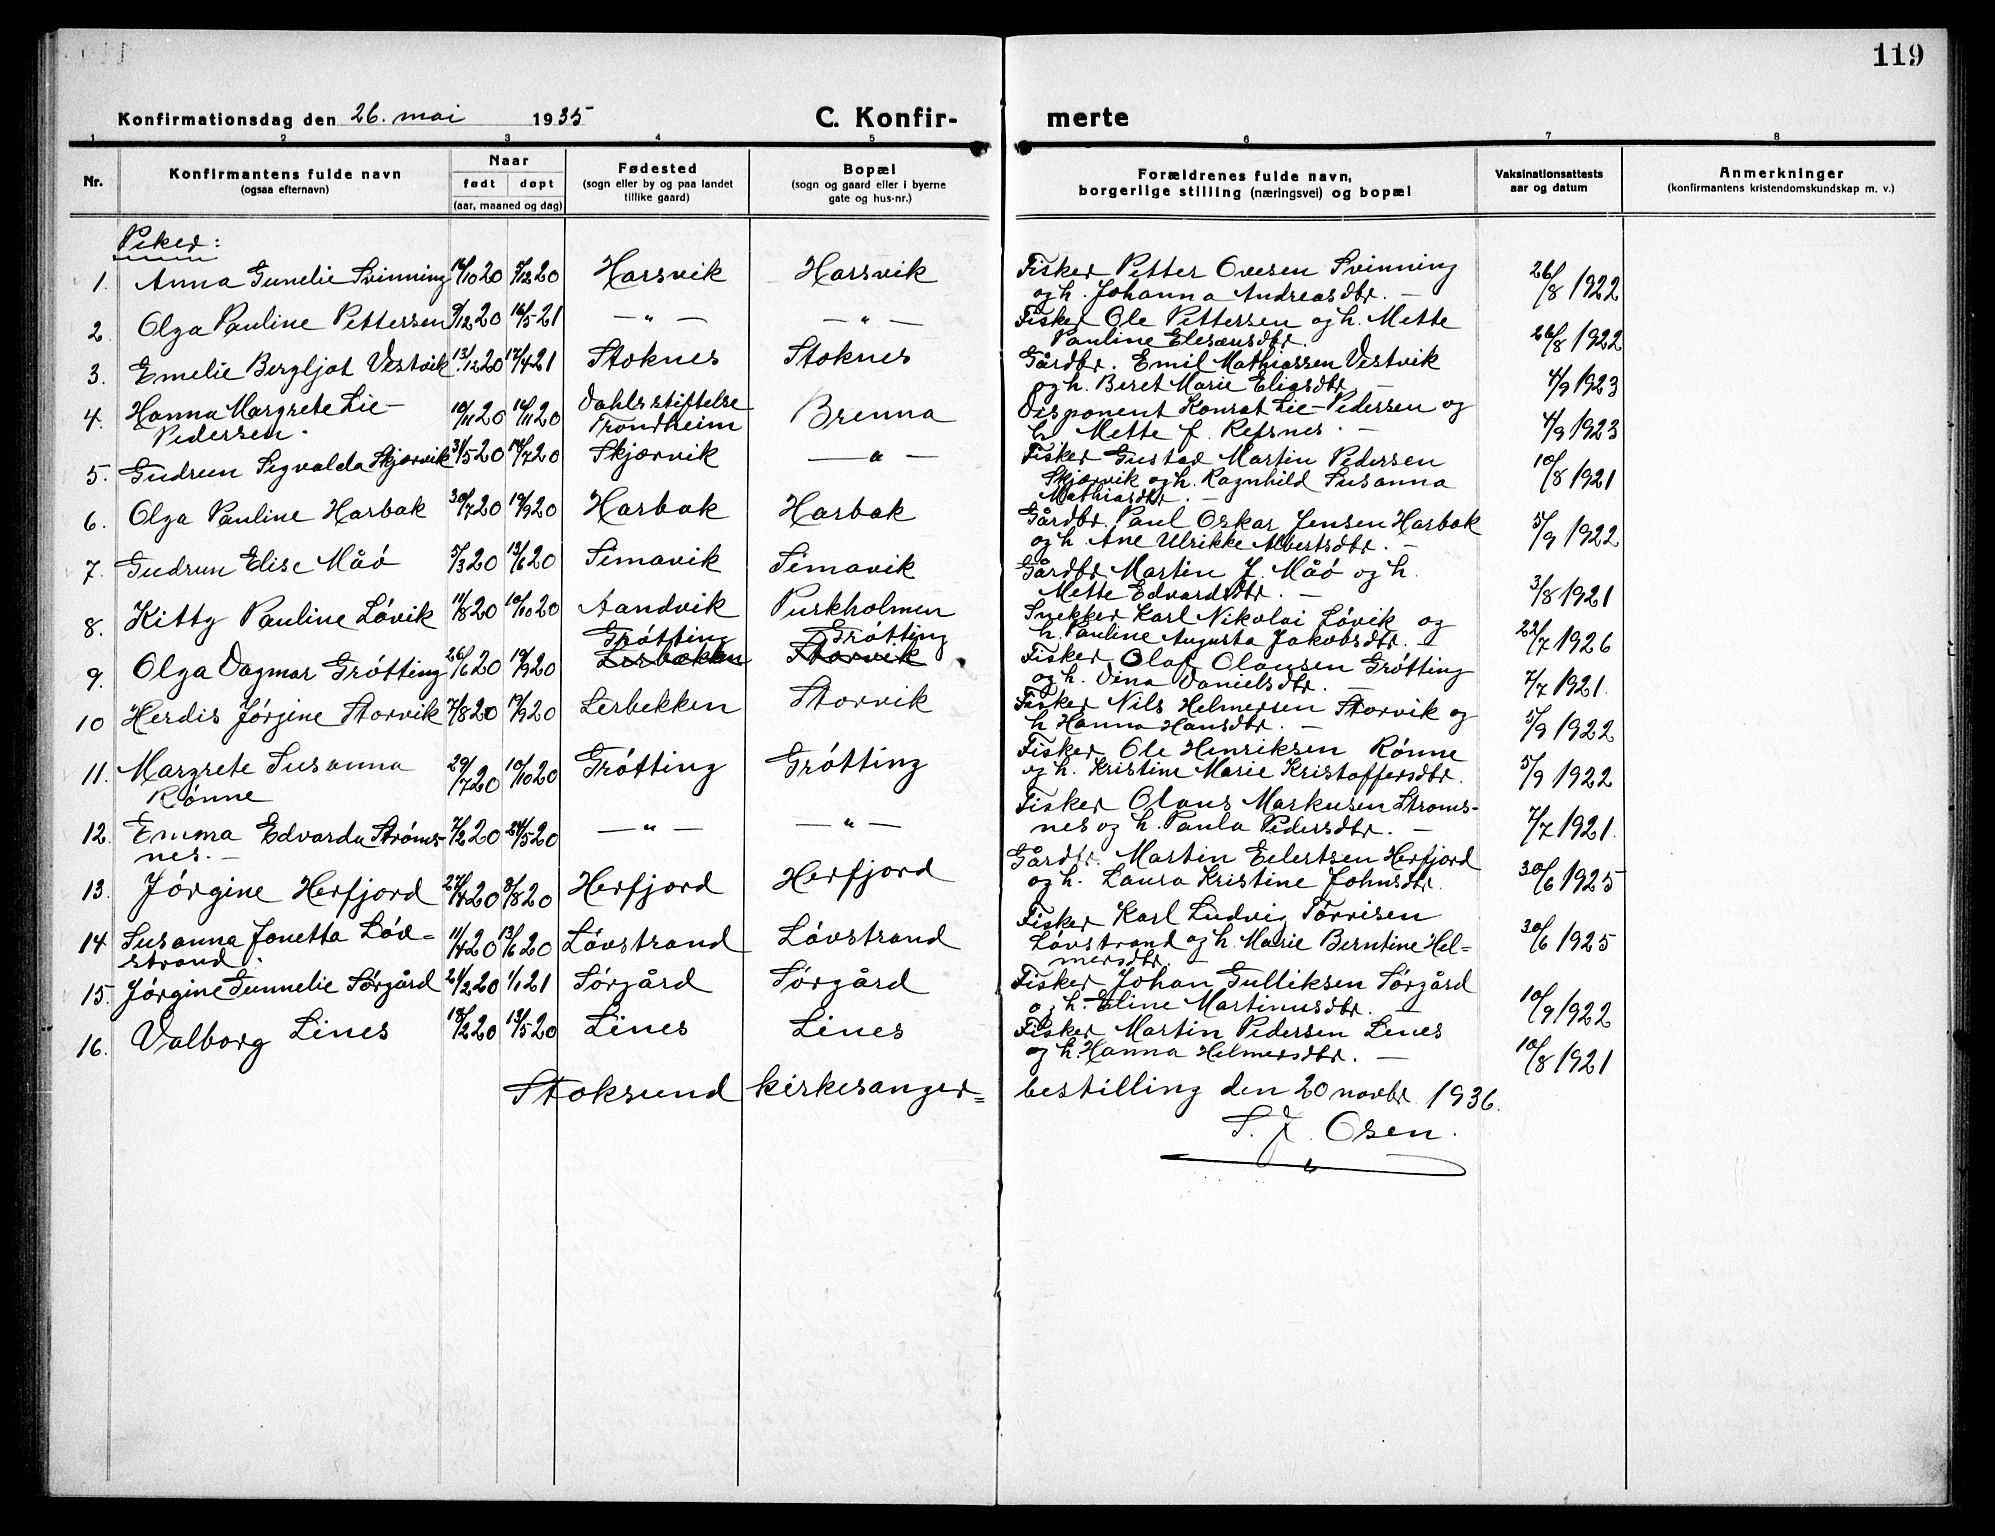 119
Konfirmationsdag den 26. mai 1935
C. Konfir-
merte
1 2 3 4 5 6 7 8
Nr.
Konfirmantens fulde navn
(ogsaa efternavn)
Naar
født døpt
(aar, maaned og dag)
Fødested
(sogn eller by og paa landet
tillike gaard)
Bopæl
(sogn og gaard eller i byerne
gate og hus-nr.)
Forældrenes fulde navn,
borgerlige stilling (næringsvei) og bopæl
Vaksinationsattests
aar og datum
Anmerkninger
(konfirmantens kristendomskundskap m. v.)
Piker:
1. Anna Gunelie Svinning 14/10 20 5/12 20 Harsvik Harsvik
Fisker Petter Ovesen Svinning
og h. Johanna Andreasdtr. — 26/8 1922
2. Olga Pauline Pettersen 9/12 20 16/5-21 — " — — " —
Fisker Ole Pettersen og h. Mette
Pauline Elesæusdtr. 26/8 1922
3. Emelie Bergljot Vestvik 13/12 20 17/4 21 Stoknes Stoknes
Gårdbr. Emil Mathiassen Vestvik
og h. Beret Marie Eliasdtr — 4/9 1923
4. Hanna Margrete Lie-
Pedersen. 10/11 20 14/11 20 Dahls stiftelse
Trondheim Brenna
Disponent Konrat Lie-Pedersen og
h. Mette f. Refsnes. — 4/9 1923
5. Gudrun Sigvalda Skjærvik 31/5 20 18/7 20 Skjærvik — " —
Fisker Gustav Martin Pedersen
Skjærvik og h. Ragnhild Susanna
Mathiasdtr. — 10/8 1921
6. Olga Pauline Harbak 30/7 20 19/9 20 Harbak Harbak
Gårdbr. Paul Oskar Jensen Harbak
og h. Ane Ulrikke Albertsdtr. — 5/9 1922
7. Gudrun Elise Måø 5/3 20 13/6 20 Simavik Simavik
Gårdbr Martin J. Måø og h.
Mette Edvardsdtr. — 3/8 1921
8. Kitty Pauline Løvik 11/8 20 10/10 20 Aandvik Purkholmen
Snekker Karl Nikolai Løvik og
h. Pauline Augusta Jakobsdtr. — 22/7 1926
9. Olga Dagmar Grøtting 26/6 20 19/9 20 Grøtting
Lerbekken Grøtting
Storvik
Fisker Olaf Olausen Grøtting
og h. Dina Danielsdtr. — 7/7 1921.
10 Herdis Jørgine Storvik 7/8 20 19/9 20 Lerbekken Storvik
Fisker Nils Helmersen Storvik og
h Hanna Hansdtr. — 5/9 1922
11. Margrete Susanna
Rønne 29/7 20 10/10 20 Grøtting Grøtting
Fisker Ole Henriksen Rønne
og h. Kristine Marie Kristoffersdtr. 5/9 1922
12. Emma Edvarda Strøms-
nes. — 7/2 20 24/5-20 — " — — " —
Fisker Olaus Markusen Strøms-
nes og h. Paula Pedersdtr. — 7/7 1921.
13. Jørgine Herfjord 27/4 20 8/8 20 Herfjord Herfjord
Gårdbr. Martin Eilertsen Herfjord
og h. Laura Kristine Johnsdtr. 30/6 1925
14 Susanna Jonetta Løv=
strand. 11/4 20 13/6 20 Løvstrand Løvstrand
Fisker Karl Ludvig Tørrisen
Løvstrand og h. Marie Berntine Hel=
mersdtr. — 30/6 1925
15. Jørgine Gunnelie Sørgård 21/2 20 1/1 21 Sørgård Sørgård
Fisker Johan Gulliksen Sørgård
og h. Eline Martinusdtr. — 10/9 1922
16. Valborg Lines 18/2 20 13/5 20 Lines Lines
Fisker Martin Pedersen Lines
og h. Hanna Helmersdtr. — 10/8 1921
Stoksund kirkesanger= bestilling den 20 novbr 1936.
S. J. Osen.